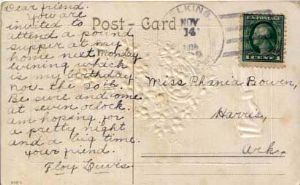 Dear friend.
You are
invited to
attend a pound
supper at my
home next Monday
evening which
is my birthday
nov. the 20th.
Be sure and come
at seven oclock.
am hoping for
a pretty night
and a big time.
your friend.
Floy Davis
Post - Card
ELKINS
NOV
14
Miss Phania Bowen,
Harris,
Ark.